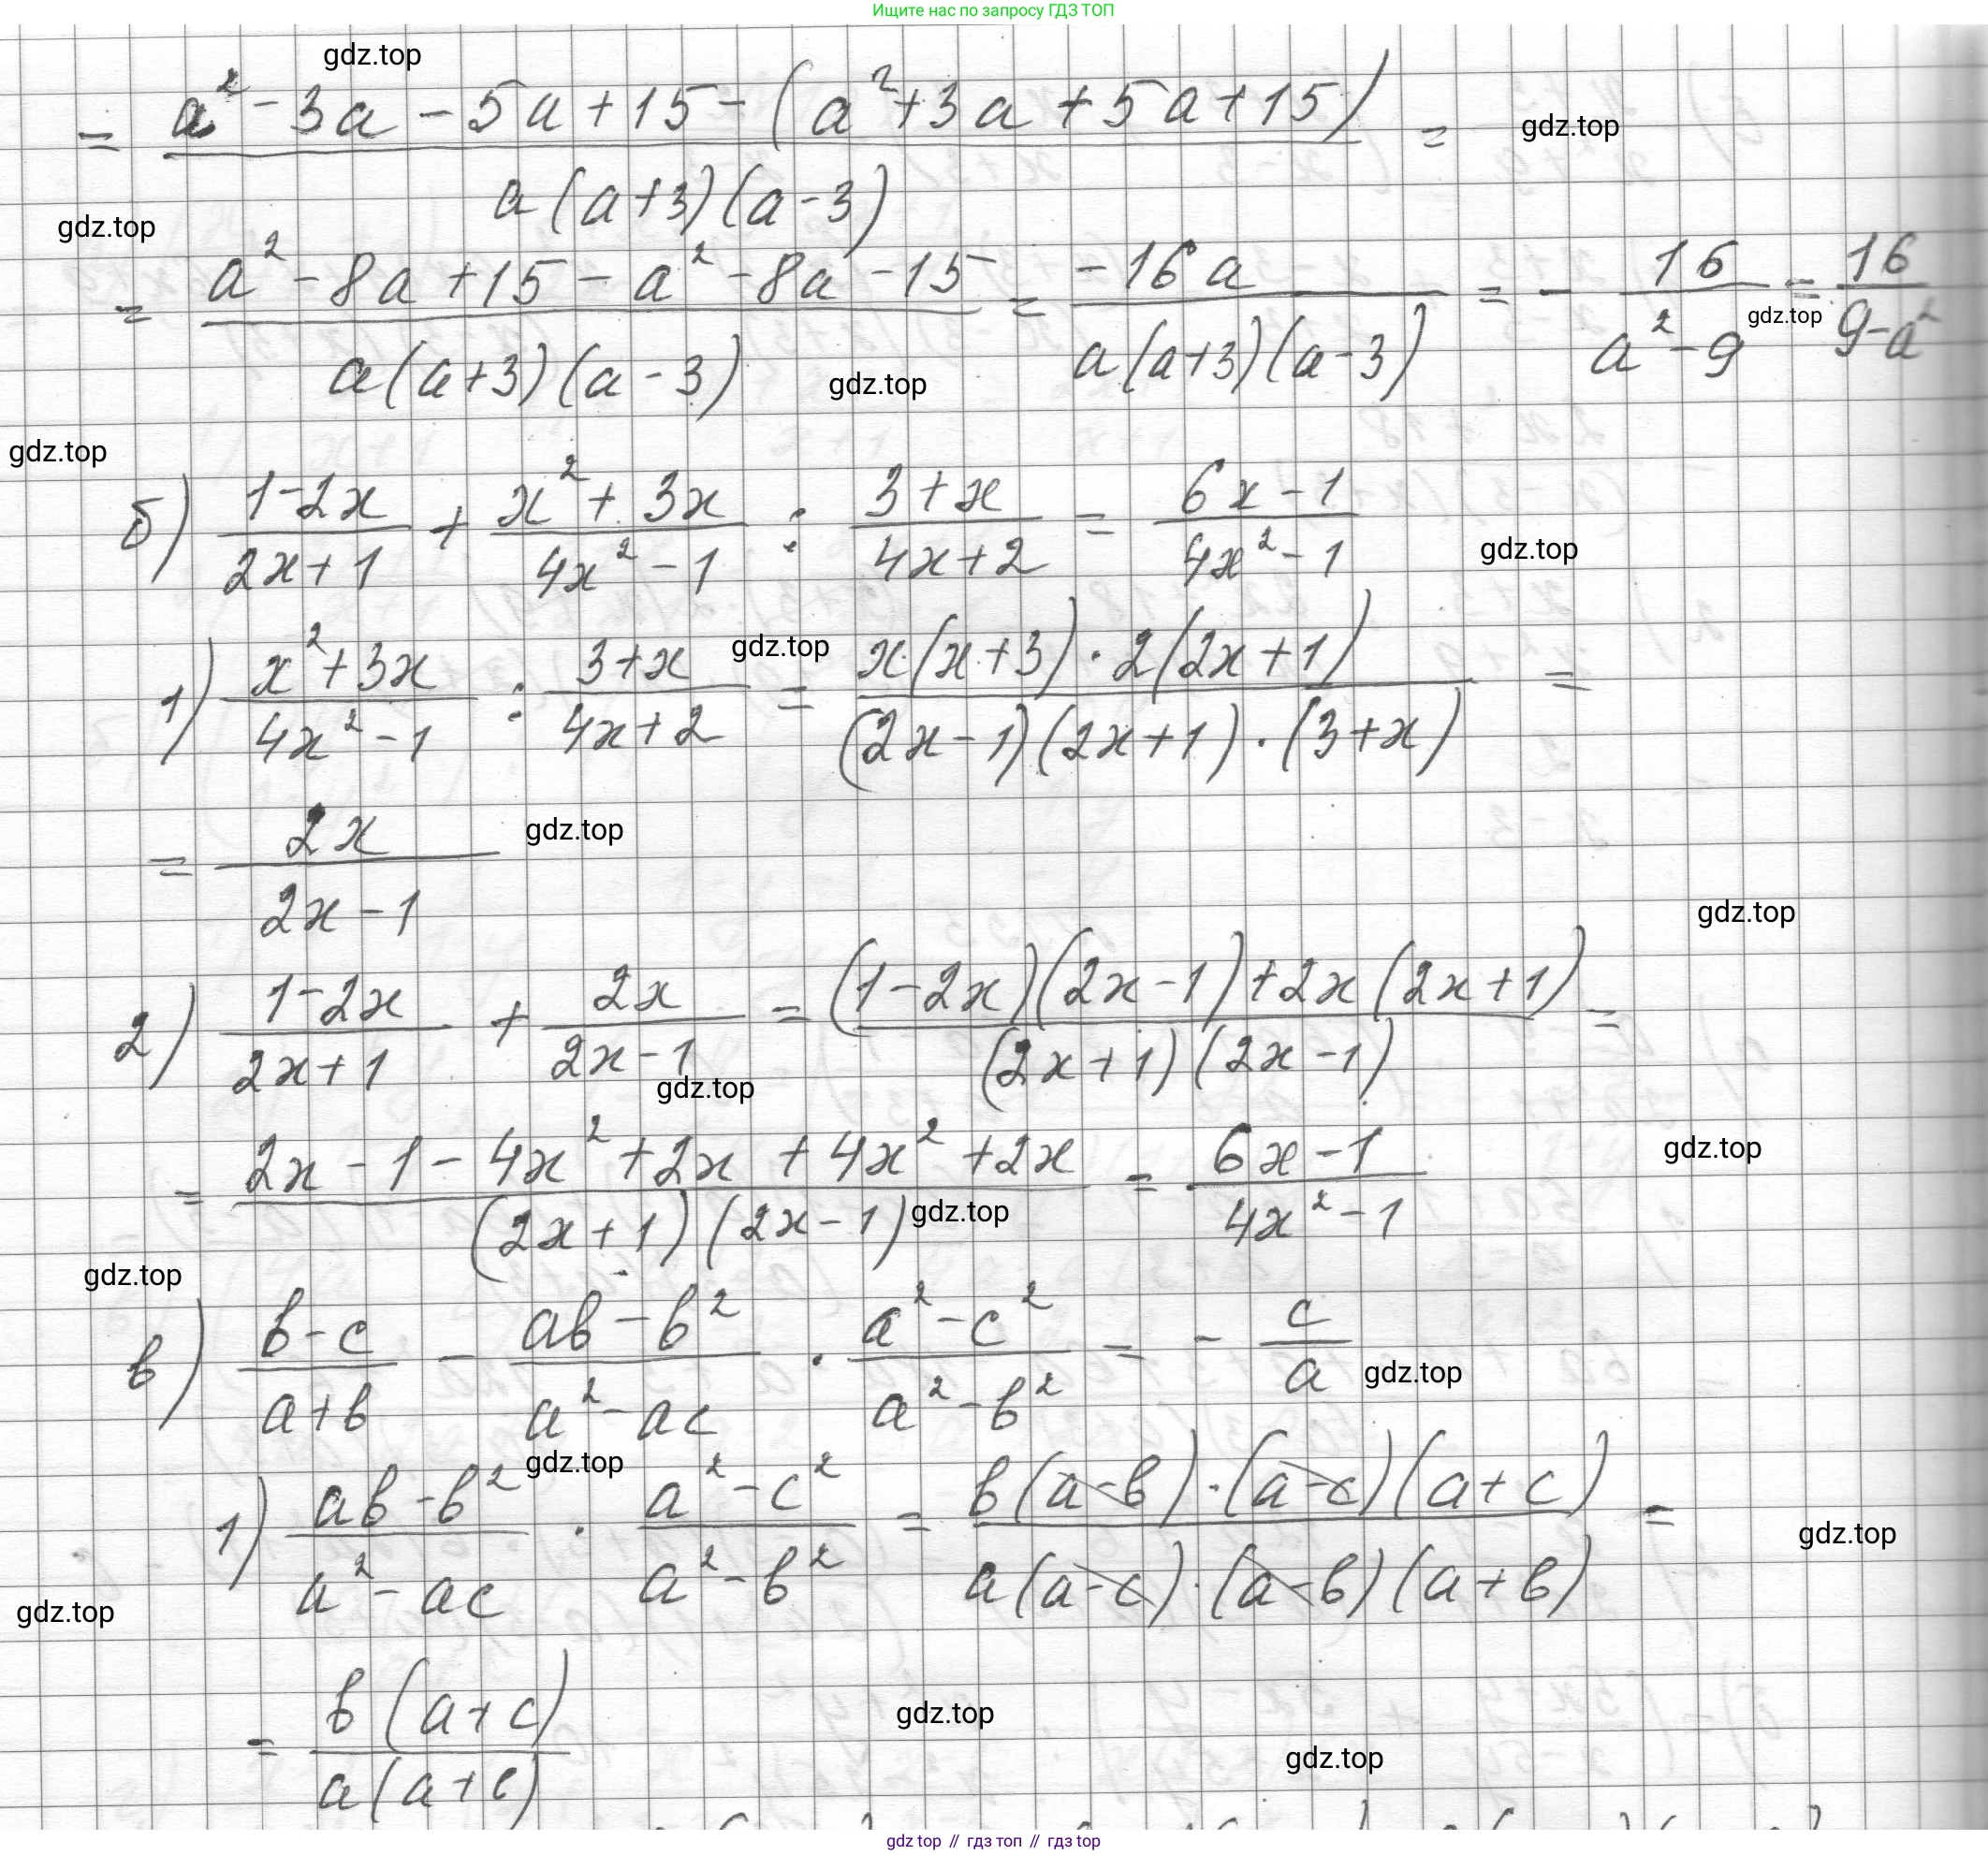 Ищите нас по запросу ГДЗ ТОП
gdz.top
= (a² - 3a - 5a + 15 - (a² + 3a + 5a + 15)) / (a(a+3)(a-3)) =
gdz.top
gdz.top
= (a² - 8a + 15 - a² - 8a - 15) / (a(a+3)(a-3)) = (-16a) / (a(a+3)(a-3)) = - 16 / (a² - 9) = 16 / (9 - a²)
gdz.top
gdz.top
gdz.top
б) (1-2x)/(2x+1) + (x²+3x)/(4x²-1) : (3+x)/(4x+2) = (6x-1)/(4x²-1)
gdz.top
1) (x²+3x)/(4x²-1) : (3+x)/(4x+2) = (x(x+3)·2(2x+1)) / ((2x-1)(2x+1)·(3+x)) =
gdz.top
= 2x/(2x-1)
gdz.top
gdz.top
2) (1-2x)/(2x+1) + 2x/(2x-1) = ((1-2x)(2x-1)+2x(2x+1)) / ((2x+1)(2x-1)) =
gdz.top
= (2x - 1 - 4x² + 2x + 4x² + 2x) / ((2x+1)(2x-1)) = (6x-1)/(4x²-1)
gdz.top
gdz.top
gdz.top
в) (в-c)/(a+в) - (aв-в²)/(a²-ac) · (a²-c²)/(a²-в²) = - c/a
gdz.top
gdz.top
1) (aв-в²)/(a²-ac) · (a²-c²)/(a²-в²) = (в(a-в)·(a-c)(a+c)) / (a(a-c)·(a-в)(a+в)) =
gdz.top
gdz.top
= (в(a+c)) / (a(a+в))
gdz.top
gdz.top
gdz top // гдз топ // гдз top